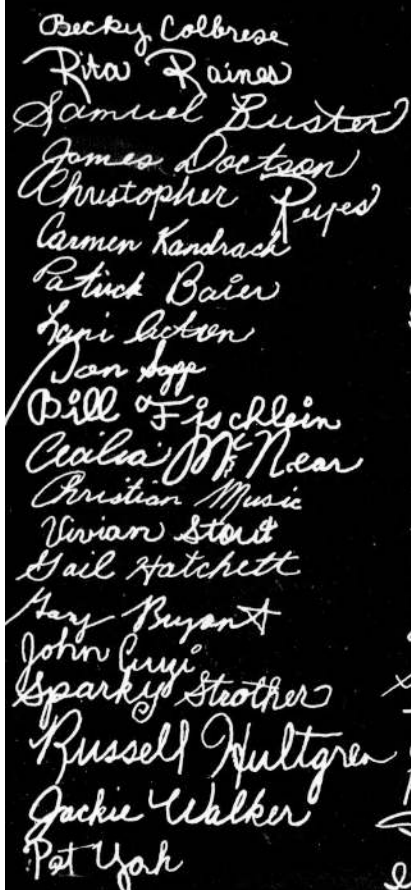 Becky Colbrese
Rita Raines
Samuel Buster
James Doctson
Christopher Reyes
Carmen Kandrach
Patrick Baier
Lani Acton
Don Sapp
Bill Fischlein
Cecilia McNear
Christian Music
Vivian Stout
Gail Hatchett
Gary Bryant
John
Sparky Strother
Russell Hultgren
Jackie Walker
Pat York